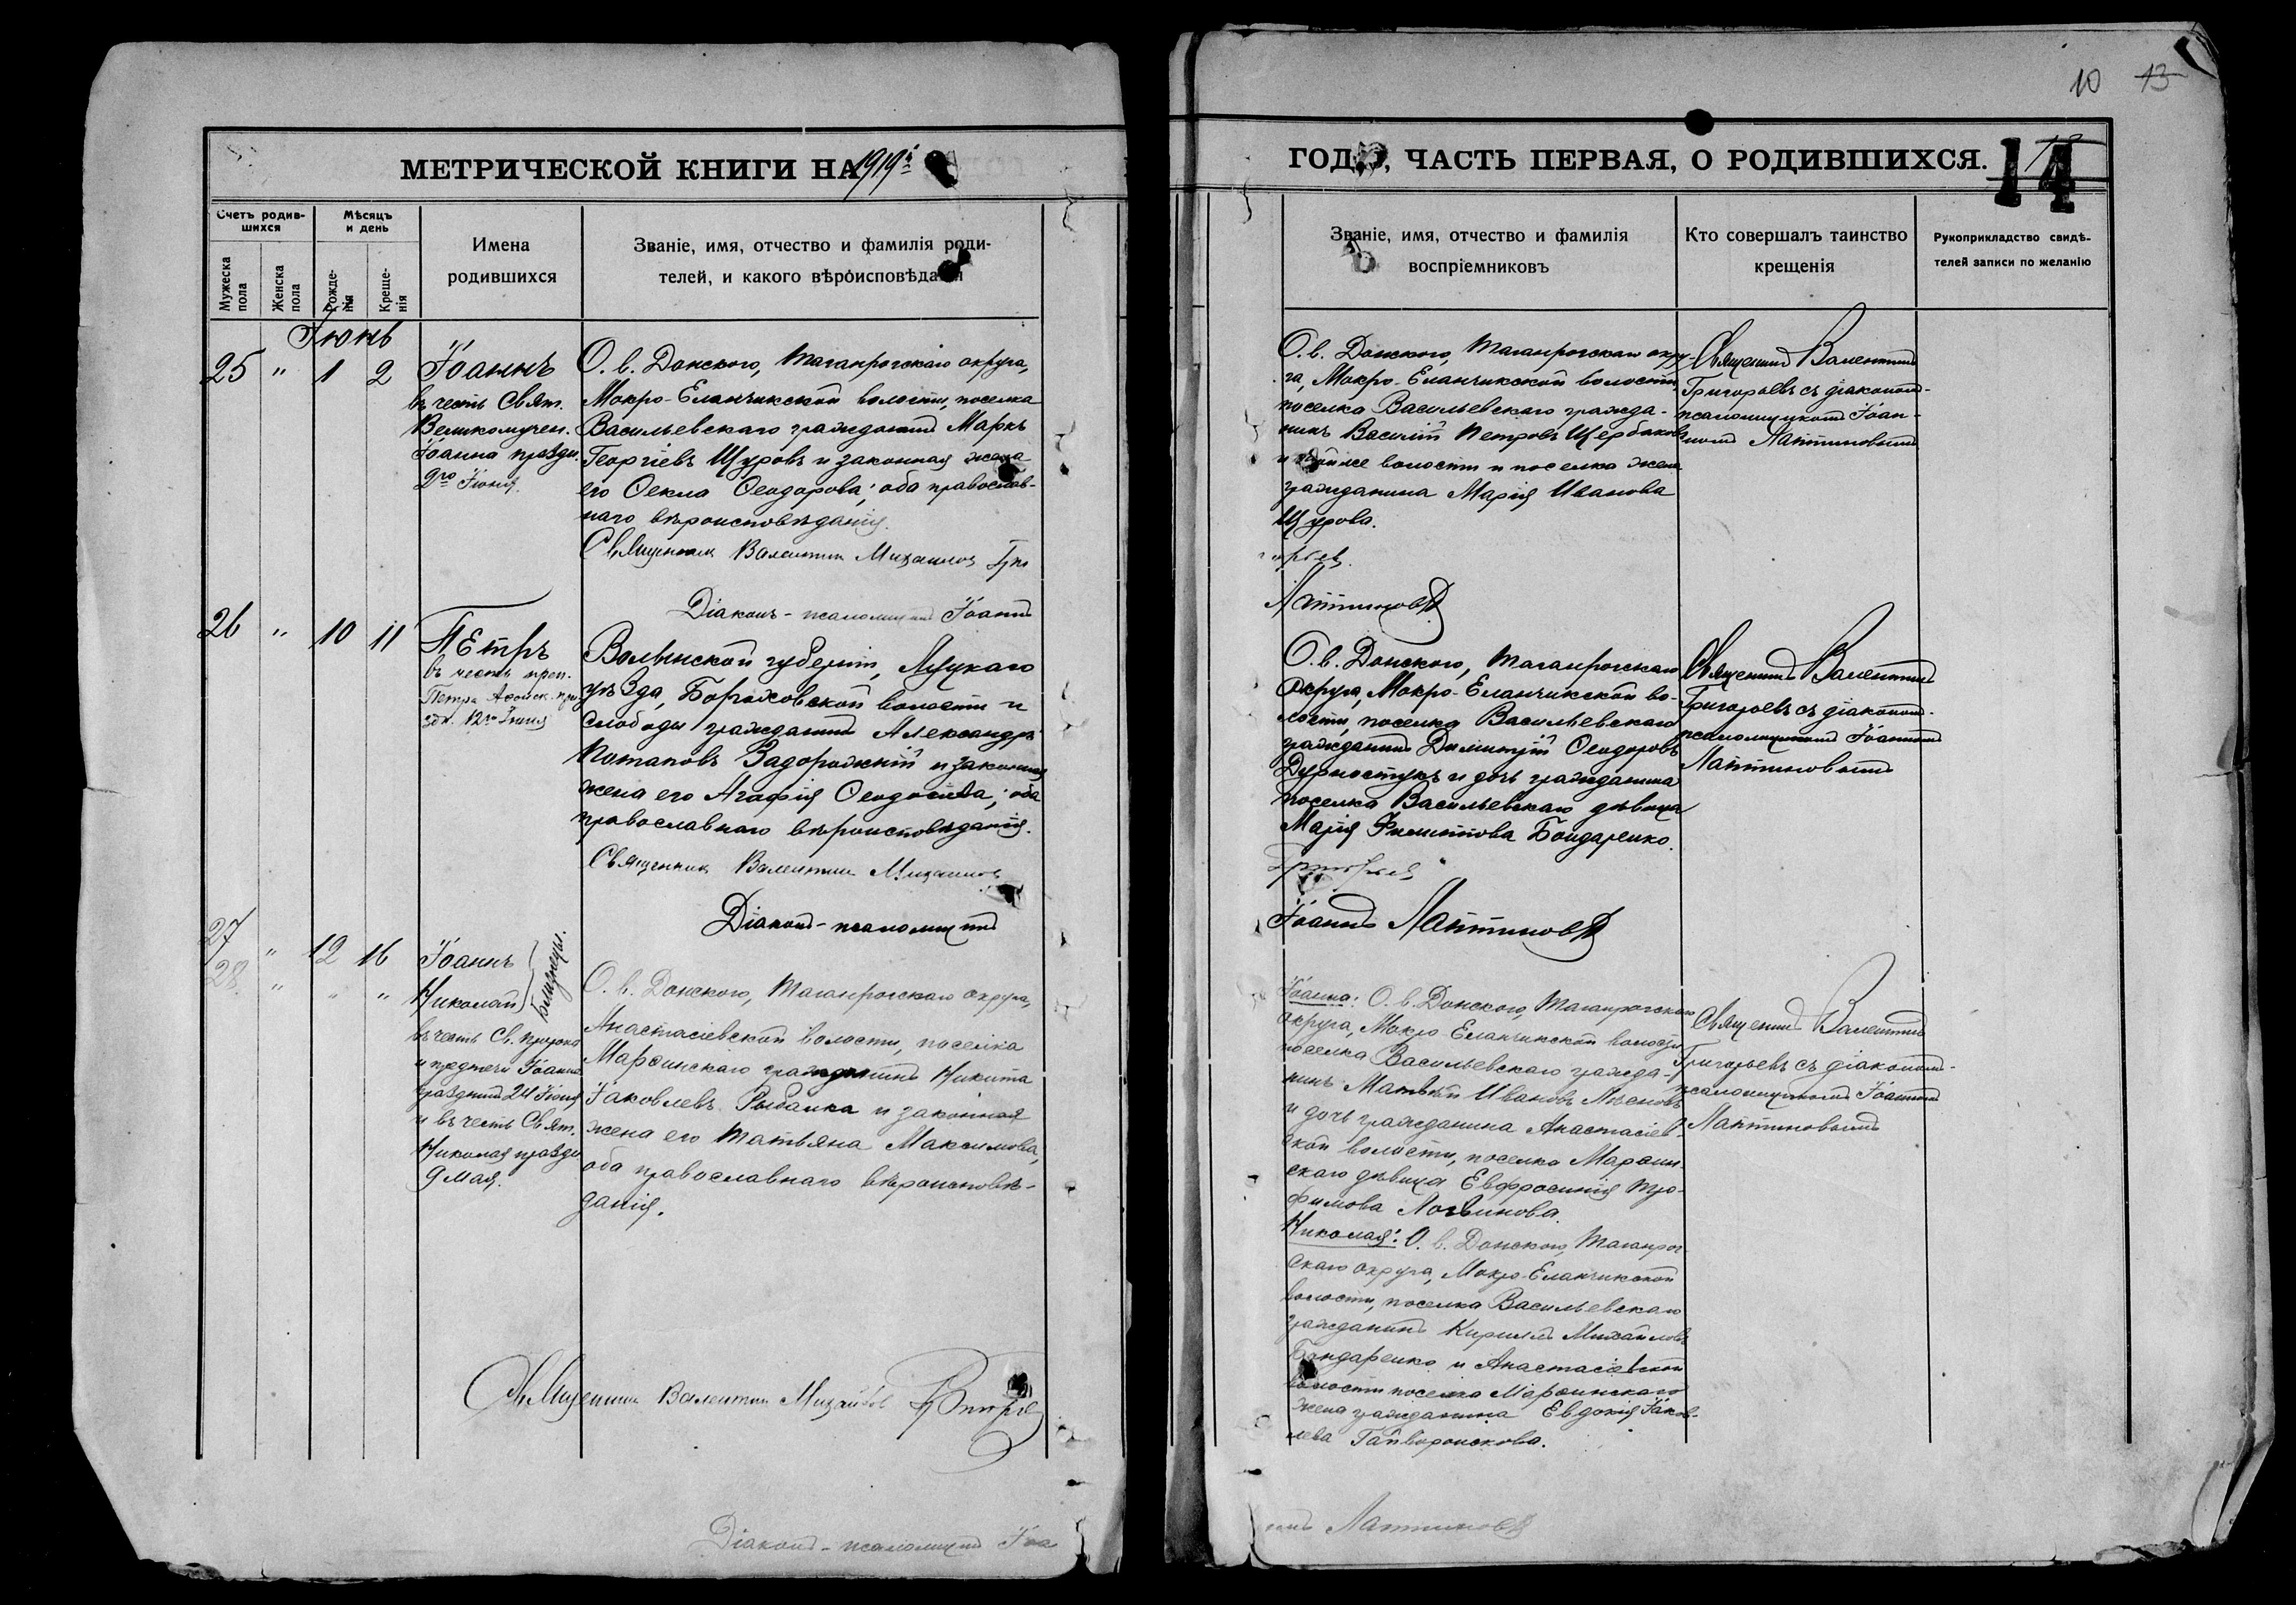 10 13
МЕТРИЧЕСКОЙ КНИГИ НА 1919й
ГОДЪ, ЧАСТЬ ПЕРВАЯ, О РОДИВШИХСЯ.
14
Счетъ родив-
шихся
Мѣсяцъ
и день
Мужеска
пола
Женска
пола
Рожде-
нія
Креще-
нія
Имена
родившихся
Званіе, имя, отчество и фамилія роди-
телей, и какого вѣроисповѣданія
Званіе, имя, отчество и фамилія
воспріемниковъ
Кто совершалъ таинство
крещенія
Рукоприкладство свидѣ-
телей записи по желанію
Іюнь
25 " 1 2
Іоаннъ
въ честь Свят.
Великомучен.
Іоанна праздн.
2го Іюня.
О. в. Донского, Таганрогскаго округа,
Мокро-Еланчикской волости, поселка
Васильевскаго гражданинъ Маркъ
Георгіевъ Щуровъ и законная жена
его Ѳекла Ѳеодорова; оба православ-
наго вѣроисповѣданія.
Священникъ Валентин Михаилов Гри
Діаконъ-псаломщикъ Іоаннъ
О. в. Донского, Таганрогскаго окру-
га, Мокро-Еланчикской волости
поселка Васильевскаго гражда-
нинъ Василій Петровъ Щербаковъ
и той же волости и поселка жена
гражданина Марія Иванова
Щурова.
горьев.
Лаптиновъ
Священникъ Валентинъ
Григорьевъ съ діакономъ-
псаломщикомъ Іоан-
номъ Лаптиновымъ
26 " 10 11
Петръ
въ честь преп.
Петра Аѳонск. пра
здн. 12го Іюня
Волынской губерніи, Луцкаго
уѣзда, Бороховской волости и
слободы гражданинъ Александръ
Потаповъ Задорожній и законная
жена его Агафія Ѳеодосіева; оба
православнаго вѣроисповѣданія.
Священник Валентин Михаилов
Діаконъ-псаломщикъ
О. в. Донского, Таганрогскаго
округа, Мокро-Еланчикской во-
лости, поселка Васильевскаго
гражданинъ Димитрій Ѳеодоровъ
Дурностукъ и дочь гражданина
поселка Васильевскаго дѣвица
Марія Филиппова Бондаренко.
Григорьев
Іоаннъ Лаптиновъ
Священникъ Валентинъ
Григорьевъ съ діакономъ-
псаломщикомъ Іоанномъ
Лаптиновымъ
27 " 12 16
28 " " "
Іоаннъ
Николай
близнецы.
въ честь Св. пророка
и предтечи Іоанна
праздник 24 Іюня
и въ честь Свят.
Николая праздн
9 мая.
О. в. Донского, Таганрогскаго округа,
Анастасіевской волости, поселка
Марѳинскаго гражданинъ Никита
Іаковлевъ Рыбалка и законная
жена его Татьяна Максимова,
оба православнаго вѣроисповѣ-
данія.
Священник Валентин Михайлов Григорье
Діаконъ-псаломщикъ Іоа
Іоанна: О. в. Донского, Таганрогскаго
округа, Мокро-Еланчикской волости
поселка Васильевскаго гражда-
нинъ Матвѣй Ивановъ
и дочь гражданина Анастасіев-
ской волости, поселка Марѳин-
скаго дѣвица Евфросинія Тро-
фимова Логвинова.
Николая: О. в. Донского, Таганрог-
скаго округа, Мокро-Еланчикской
волости, поселка Васильевскаго
гражданинъ Кириллъ Михайловъ
Бондаренко и Анастасіевской
волости поселка Марѳинскаго
жена гражданина Евдокія Іаков-
лева Гайворонскова.
ннъ Лаптиновъ
Священникъ Валентинъ
Григорьевъ съ діакономъ-
псаломщикомъ Іоанномъ
Лаптиновымъ